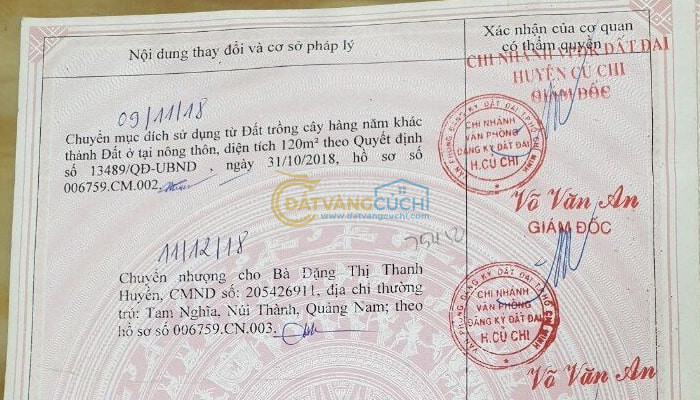 Nội dung thay đổi và cơ sở pháp lý
Xác nhận của cơ quan
có thẩm quyền
CHI NHÁNH VPĐK ĐẤT ĐAI
HUYỆN CỦ CHI
GIÁM ĐỐC
09/11/18
Chuyển mục đích sử dụng từ Đất trồng cây hàng năm khác
thành Đất ở tại nông thôn, diện tích 120m² theo Quyết định
số 13489/QĐ-UBND, ngày 31/10/2018, hồ sơ số
006759.CM.002.
VĂN PHÒNG ĐĂNG KÝ ĐẤT ĐAI TP.HỒ CHÍ MINH
CHI NHÁNH
VĂN PHÒNG
ĐĂNG KÝ ĐẤT ĐAI
H.CỦ CHI
ĐATVANGCUCHI
www.datvangcuchi.com
Võ Văn An
GIÁM ĐỐC
11/12/18
Chuyển nhượng cho Bà Đặng Thị Thanh
Huyền, CMND số: 205426911, địa chỉ thường
trú: Tam Nghĩa, Núi Thành, Quảng Nam; theo
hồ sơ số 006759.CN.003.
VĂN PHÒNG ĐĂNG KÝ ĐẤT ĐAI TP.HỒ CHÍ MINH
CHI NHÁNH
VĂN PHÒNG
ĐĂNG KÝ ĐẤT ĐAI
H.CỦ CHI
Võ Văn An